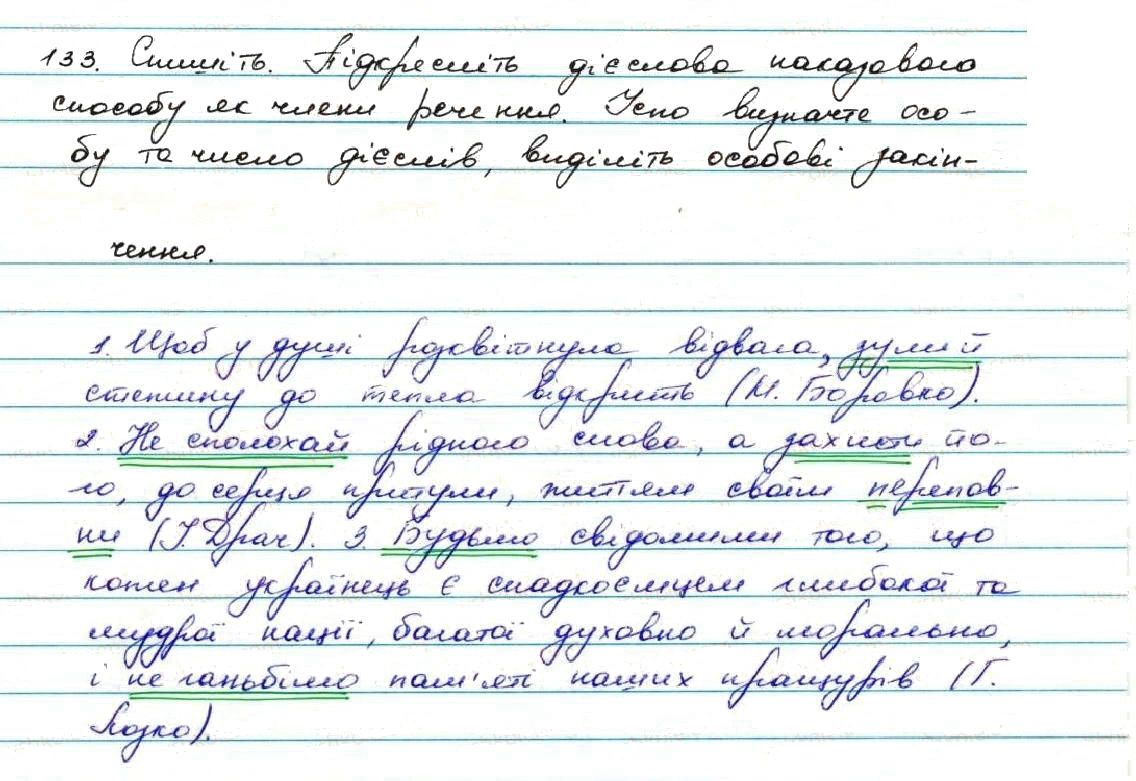 133. Спишіть. Підкресліть дієслова наказового
способу як члени речення. Усно визначте осо-
бу та число дієслів, виділіть особові закін-
чення.
1. Щоб у душі розквітнула відвага, зумій
стежину до тепла відкрить (М. Боровко).
2. Не сполохай рідного слова, а захисти йо-
го, до серця притули, життям своїм переповни-
ни (І. Драч). 3. Будьмо свідомими того, що
кожен українець є спадкоємцем глибокої та
мудрої нації, багатої духовно й морально,
і не ганьбімо пам'яті наших пращурів (Г.
Лозко).